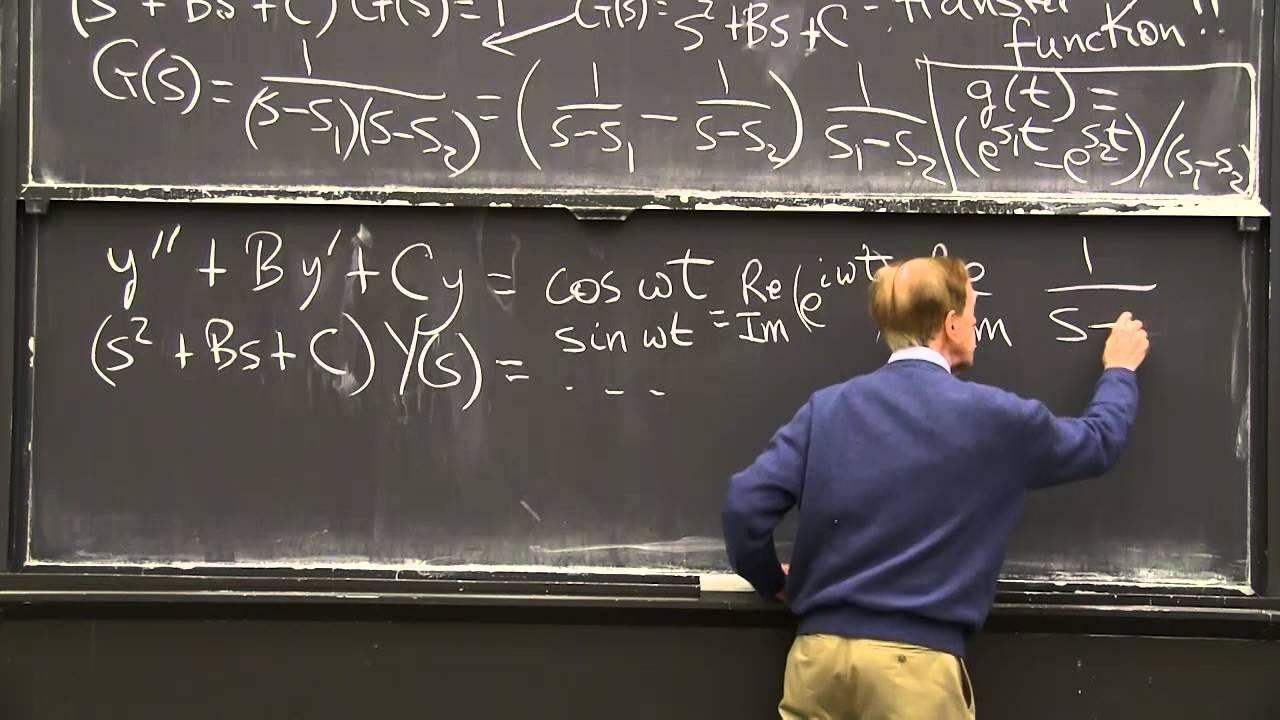 (s² + Bs + C) G(s) = 1 G(s) = 1/(s² + Bs + C) = transfer function!!
G(s) = 1/((s-s₁)(s-s₂)) = (1/(s-s₁) - 1/(s-s₂)) 1/(s₁-s₂)
g(t) =
(e^{s₁t} - e^{s₂t})/(s₁-s₂)
y'' + By' + Cy = cos ωt = Re (e^{iωt} Re 1/(s-
sin ωt Im
(s² + Bs + C) Y(s) = . - -